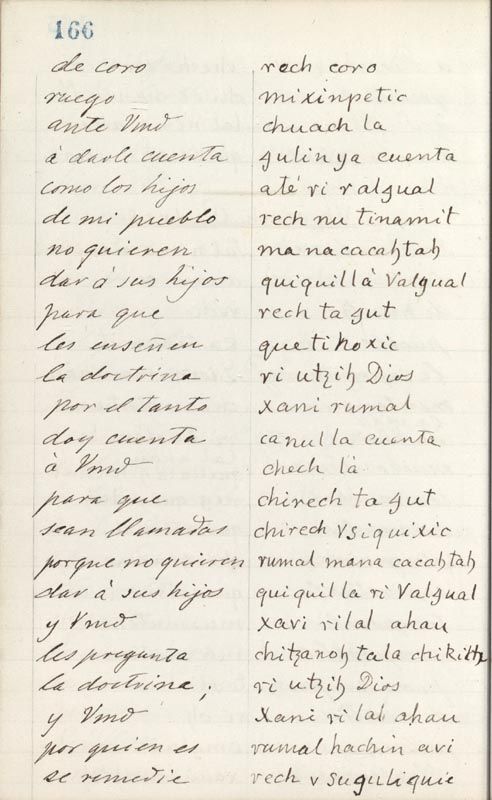 166
de coro rech coro
ruego mixinpetic
ante Vmd chuach la
á darle cuenta gulinya cuenta
como los hijos até ri ralgual
de mi pueblo rech nu tinamit
no quieren mana cacahtah
dar á sus hijos quiquillà Valgual
para que rech ta gut
les enseñen quetihoxic
la doctrina ri utzih Dios
por el tanto xani rumal
doy cuenta canulla cuenta
à Vmd chech là
para que chirech ta gut
sean llamados chirech vsiquixic
porque no quieren rumal mana cacahtah
dar á sus hijos quiquilla ri Valgual
y Vmd xavi rilal ahau
les pregunta chitzanoh tala
la doctrina; ri utzih Dios
y Vmd xani ri lal ahau
por quien es rumal hachin avi
se remedie rech v suguliquic